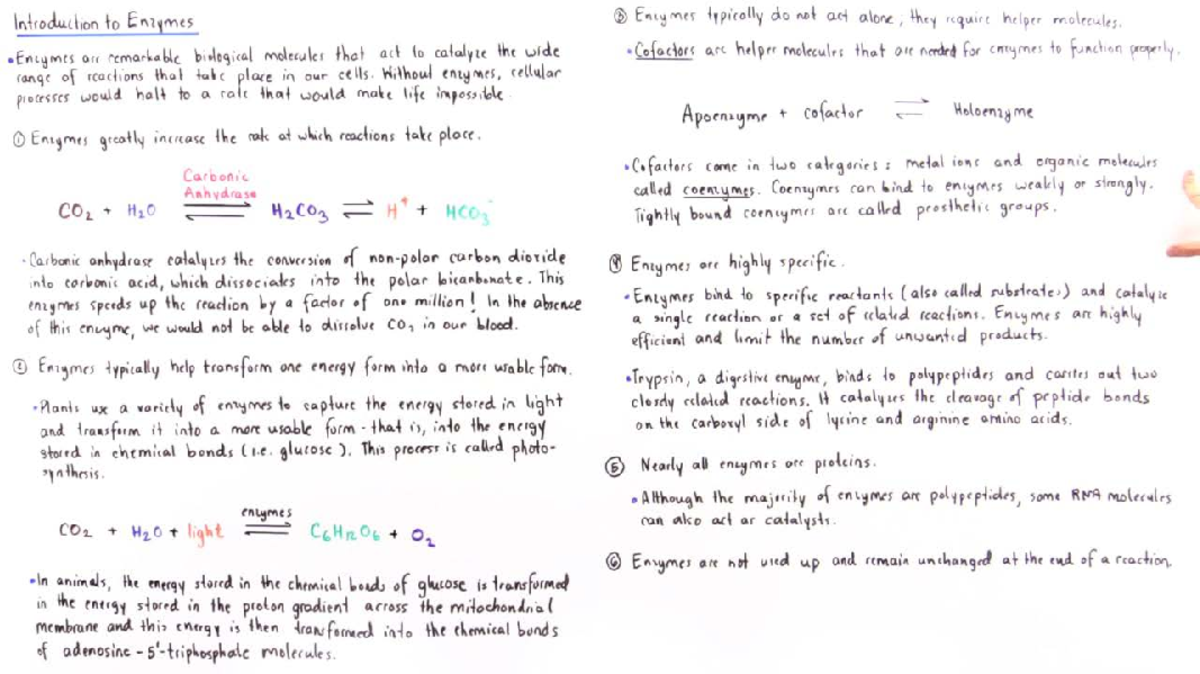 Introduction to Enzymes
• Enzymes are remarkable biological molecules that act to catalyze the wide
range of reactions that take place in our cells. Without enzymes, cellular
processes would halt to a rate that would make life impossible.
① Enzymes greatly increase the rate at which reactions take place.
Carbonic
Anhydrase
CO₂ + H₂O ⇌ H₂CO₃ ⇌ H⁺ + HCO₃⁻
• Carbonic anhydrase catalyzes the conversion of non-polar carbon dioxide
into carbonic acid, which dissociates into the polar bicarbonate. This
enzymes speeds up the reaction by a factor of one million! In the absence
of this enzyme, we would not be able to dissolve CO₂ in our blood.
② Enzymes typically help transform one energy form into a more usable form.
• Plants use a variety of enzymes to capture the energy stored in light
and transform it into a more usable form - that is, into the energy
stored in chemical bonds (i.e. glucose). This process is called photo-
synthesis.
enzymes
CO₂ + H₂O + light ⇌ C₆H₁₂O₆ + O₂
• In animals, the energy stored in the chemical bonds of glucose is transformed
in the energy stored in the proton gradient across the mitochondrial
membrane and this energy is then transformed into the chemical bonds
of adenosine-5'-triphosphate molecules.
③ Enzymes typically do not act alone; they require helper molecules.
• Cofactors are helper molecules that are needed for enzymes to function properly.
Apoenzyme + cofactor ⇌ Holoenzyme
• Cofactors come in two categories: metal ions and organic molecules
called coenzymes. Coenzymes can bind to enzymes weakly or strongly.
Tightly bound coenzymes are called prosthetic groups.
④ Enzymes are highly specific.
• Enzymes bind to specific reactants (also called substrates) and catalyze
a single reaction or a set of related reactions. Enzymes are highly
efficient and limit the number of unwanted products.
• Trypsin, a digestive enzyme, binds to polypeptides and carries out two
closely related reactions. It catalyzes the cleavage of peptide bonds
on the carboxyl side of lysine and arginine amino acids.
⑤ Nearly all enzymes are proteins.
• Although the majority of enzymes are polypeptides, some RNA molecules
can also act as catalysts.
⑥ Enzymes are not used up and remain unchanged at the end of a reaction.